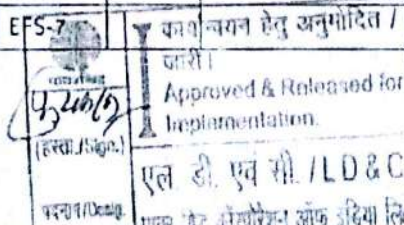 EFS-7
कार्यान्वयन हेतु अनुमोदित /
जारी।
Approved & Released for
Implementation.
(हस्ता./Sign.)
एल. डी. एवं सी. / L D & C
पदनाम/Desig.
ऑफ इंडिया लि